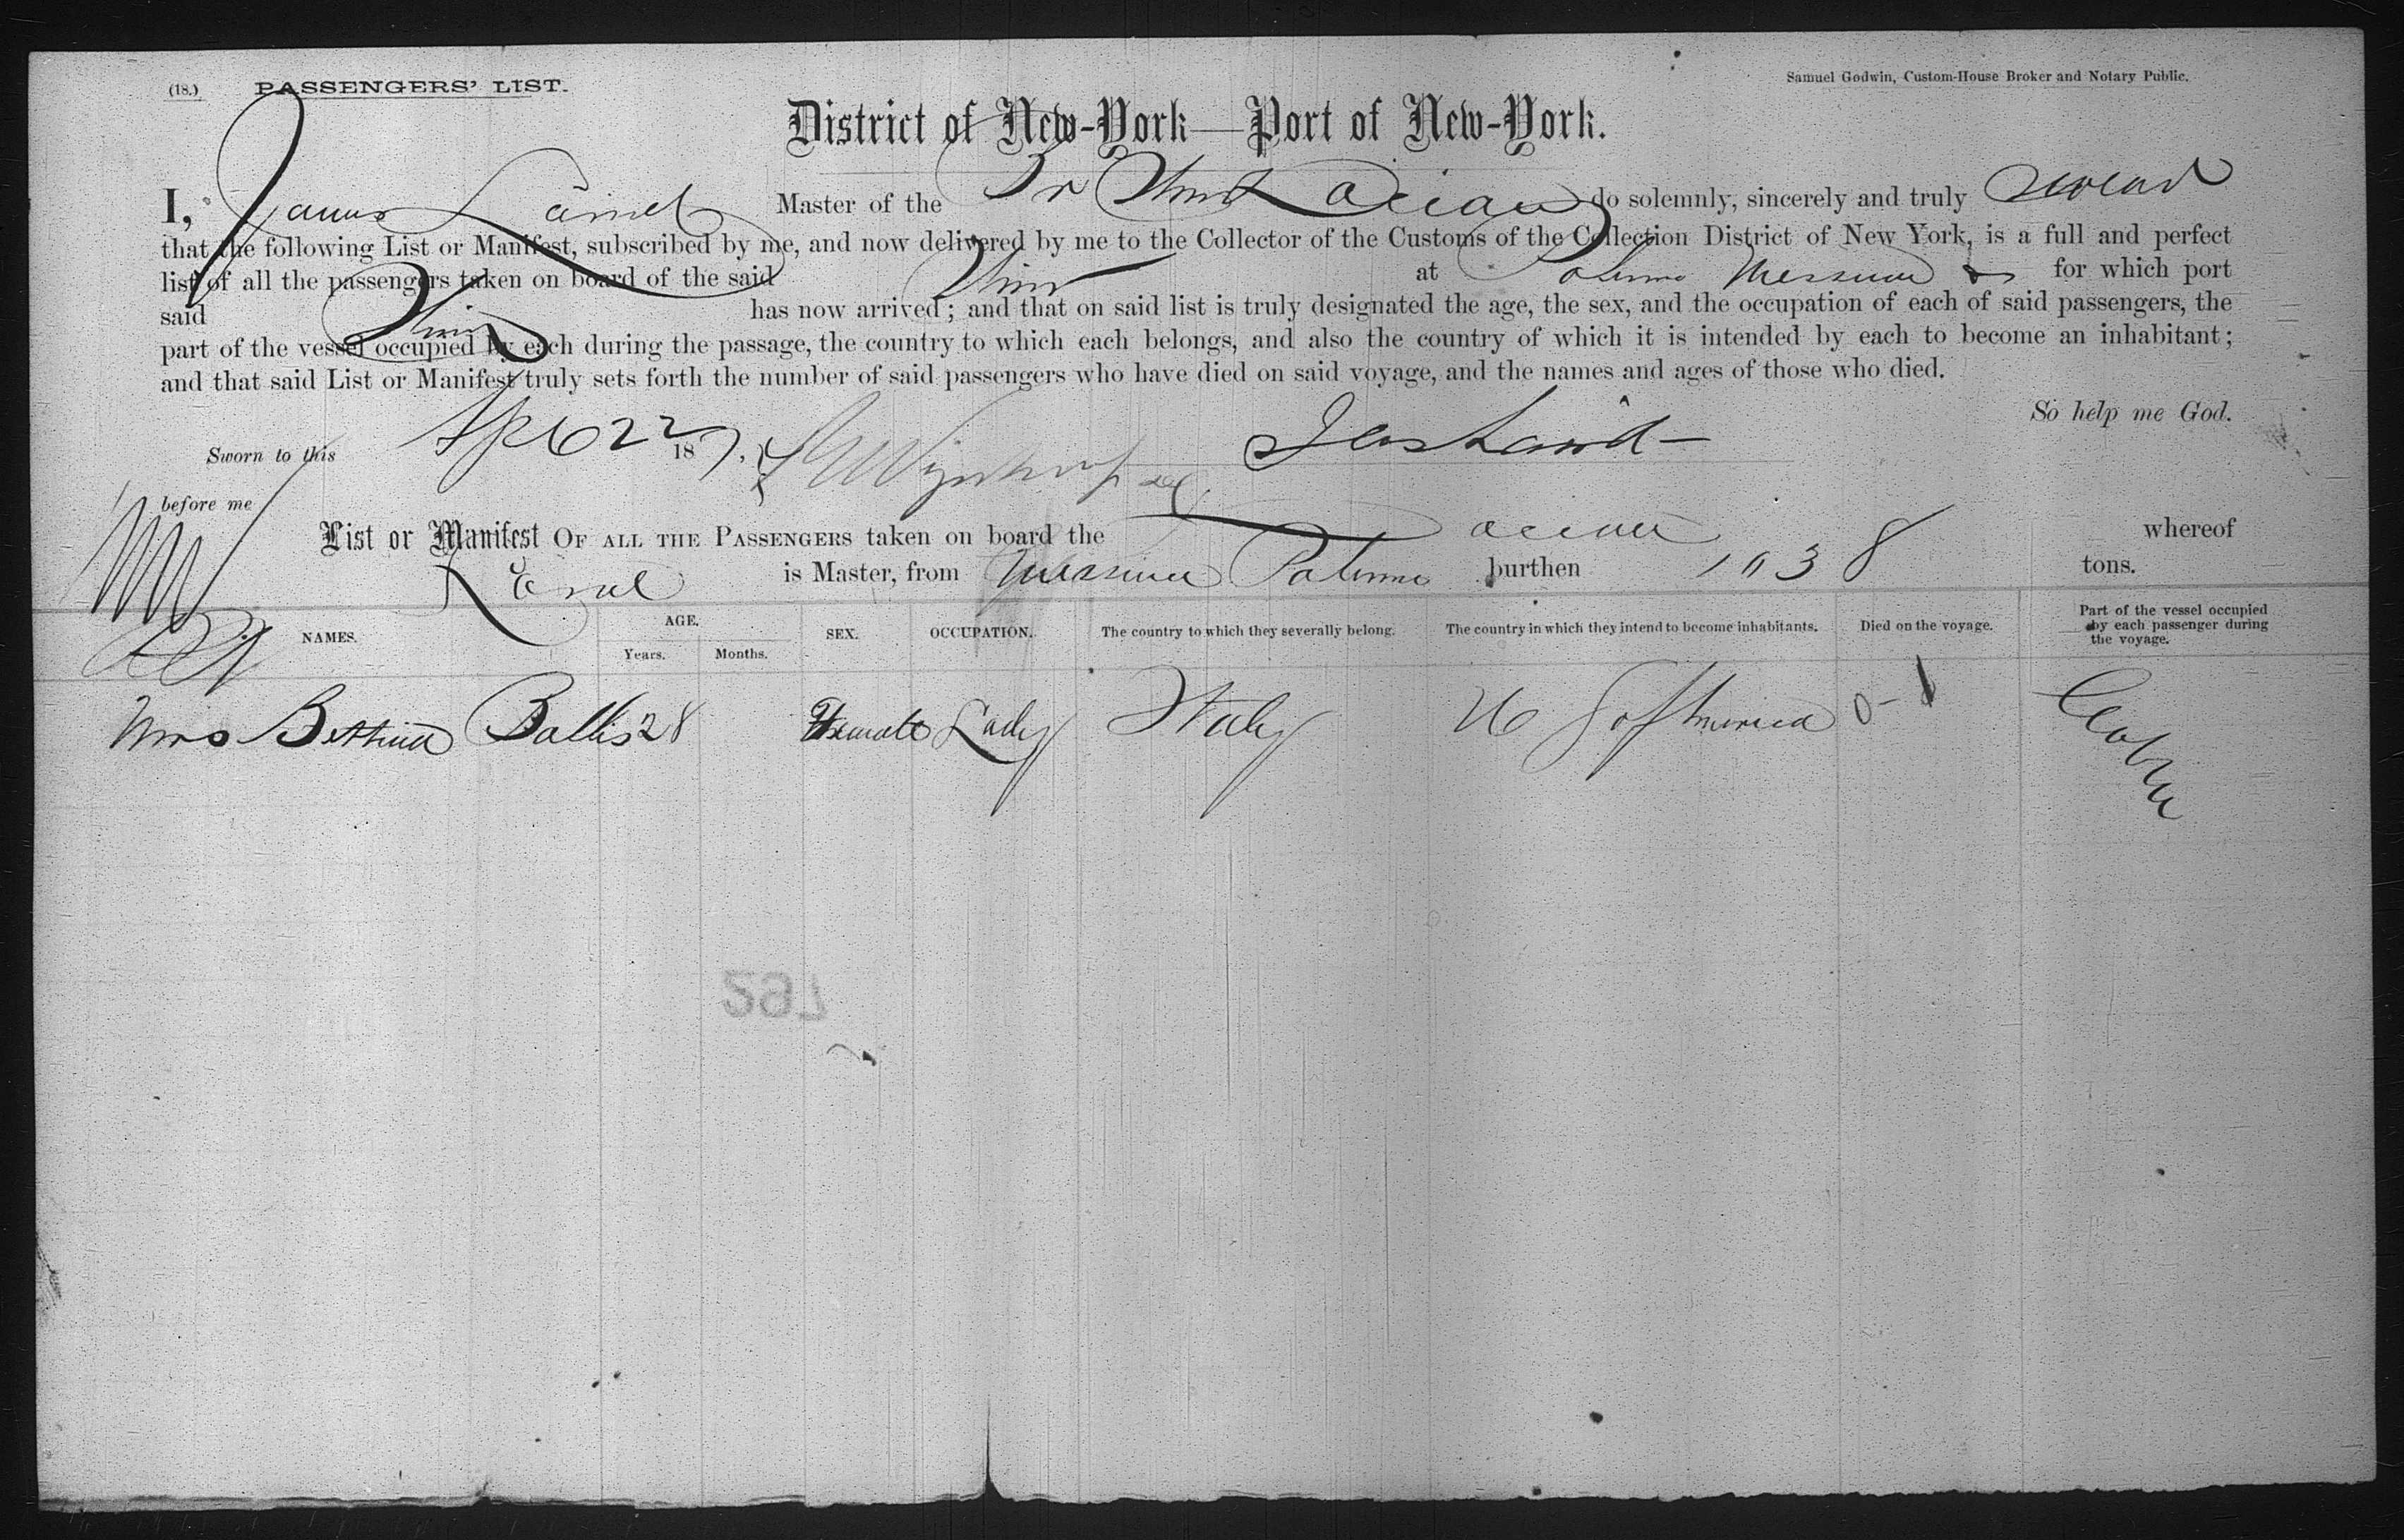 (18.) PASSENGERS' LIST.
Samuel Godwin, Custom-House Broker and Notary Public.
District of New-York—Port of New-York.
I, James Laird Master of the Br Stmr do solemnly, sincerely and truly swear
that the following List or Manifest, subscribed by me, and now delivered by me to the Collector of the Customs of the Collection District of New York, is a full and perfect
list of all the passengers taken on board of the said Stmr at Palermo Messina & for which port
said Stmr has now arrived; and that on said list is truly designated the age, the sex, and the occupation of each of said passengers, the
part of the vessel occupied by each during the passage, the country to which each belongs, and also the country of which it is intended by each to become an inhabitant;
and that said List or Manifest truly sets forth the number of said passengers who have died on said voyage, and the names and ages of those who died.
So help me God.
Sworn to this 22 187 Jas Laird
before me
List or Manifest OF ALL THE PASSENGERS taken on board the whereof
Laird is Master, from Messina Palermo burthen 1038 tons.
NAMES. AGE. Years. Months. SEX. OCCUPATION. The country to which they severally belong. The country in which they intend to become inhabitants. Died on the voyage. Part of the vessel occupied by each passenger during the voyage.
Mrs Bettina Ballis 28 Female Lady Italy U S of America 0- Cabin
297